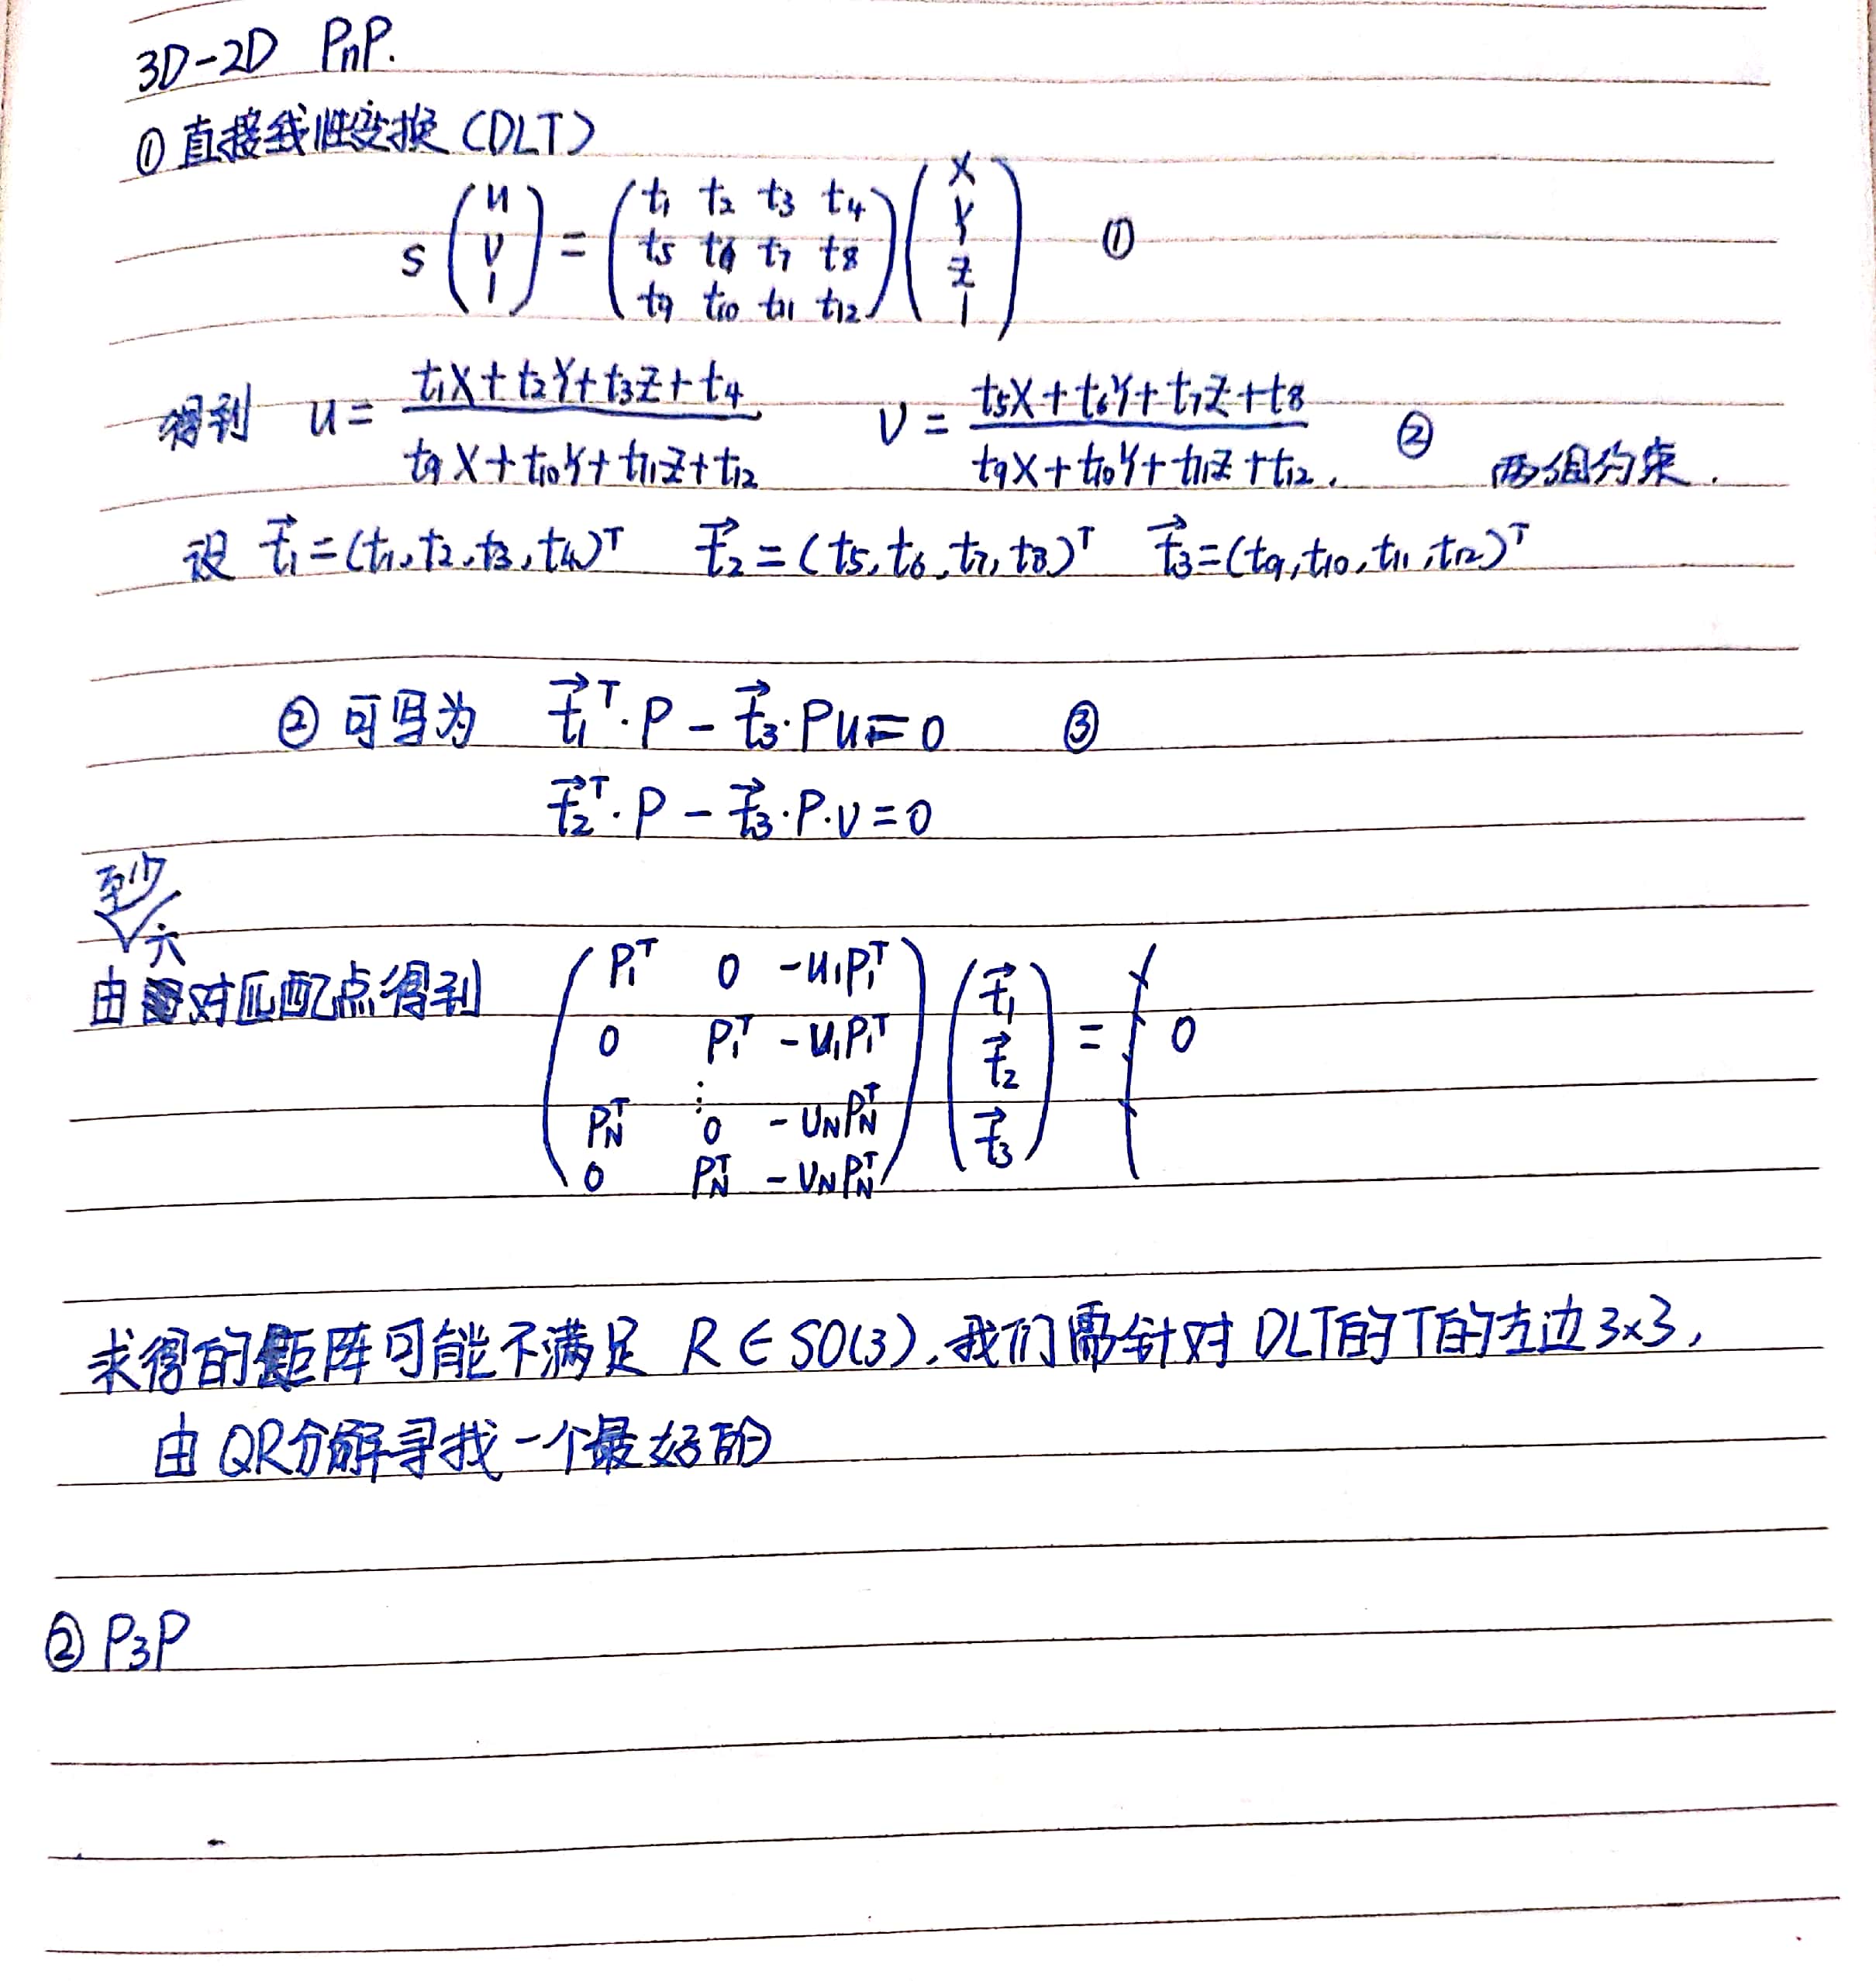 3D-2D PnP.
① 直接线性变换 (DLT)
s (u v 1) = (t1 t2 t3 t4; t5 t6 t7 t8; t9 t10 t11 t12) (X Y Z 1) ①
得到 u = (t1X + t2Y + t3Z + t4) / (t9X + t10Y + t11Z + t12) v = (t5X + t6Y + t7Z + t8) / (t9X + t10Y + t11Z + t12). ② 两组约束.
设 t⃗1 = (t1, t2, t3, t4)ᵀ t⃗2 = (t5, t6, t7, t8)ᵀ t⃗3 = (t9, t10, t11, t12)ᵀ
② 可写为 t⃗1ᵀ · P − t⃗3 · P u = 0 ③
t⃗2ᵀ · P − t⃗3 · P · v = 0
至少
六
由对匹配点得到 (P1ᵀ 0 −u1P1ᵀ; 0 P1ᵀ −u1P1ᵀ; ⋮; PNᵀ 0 −uNPNᵀ; 0 PNᵀ −vNPNᵀ) (t⃗1 t⃗2 t⃗3) = 0
求得的矩阵可能不满足 R ∈ SO(3), 我们需针对 DLT的T的左边 3×3,
由 QR分解寻找一个最好的
② P3P